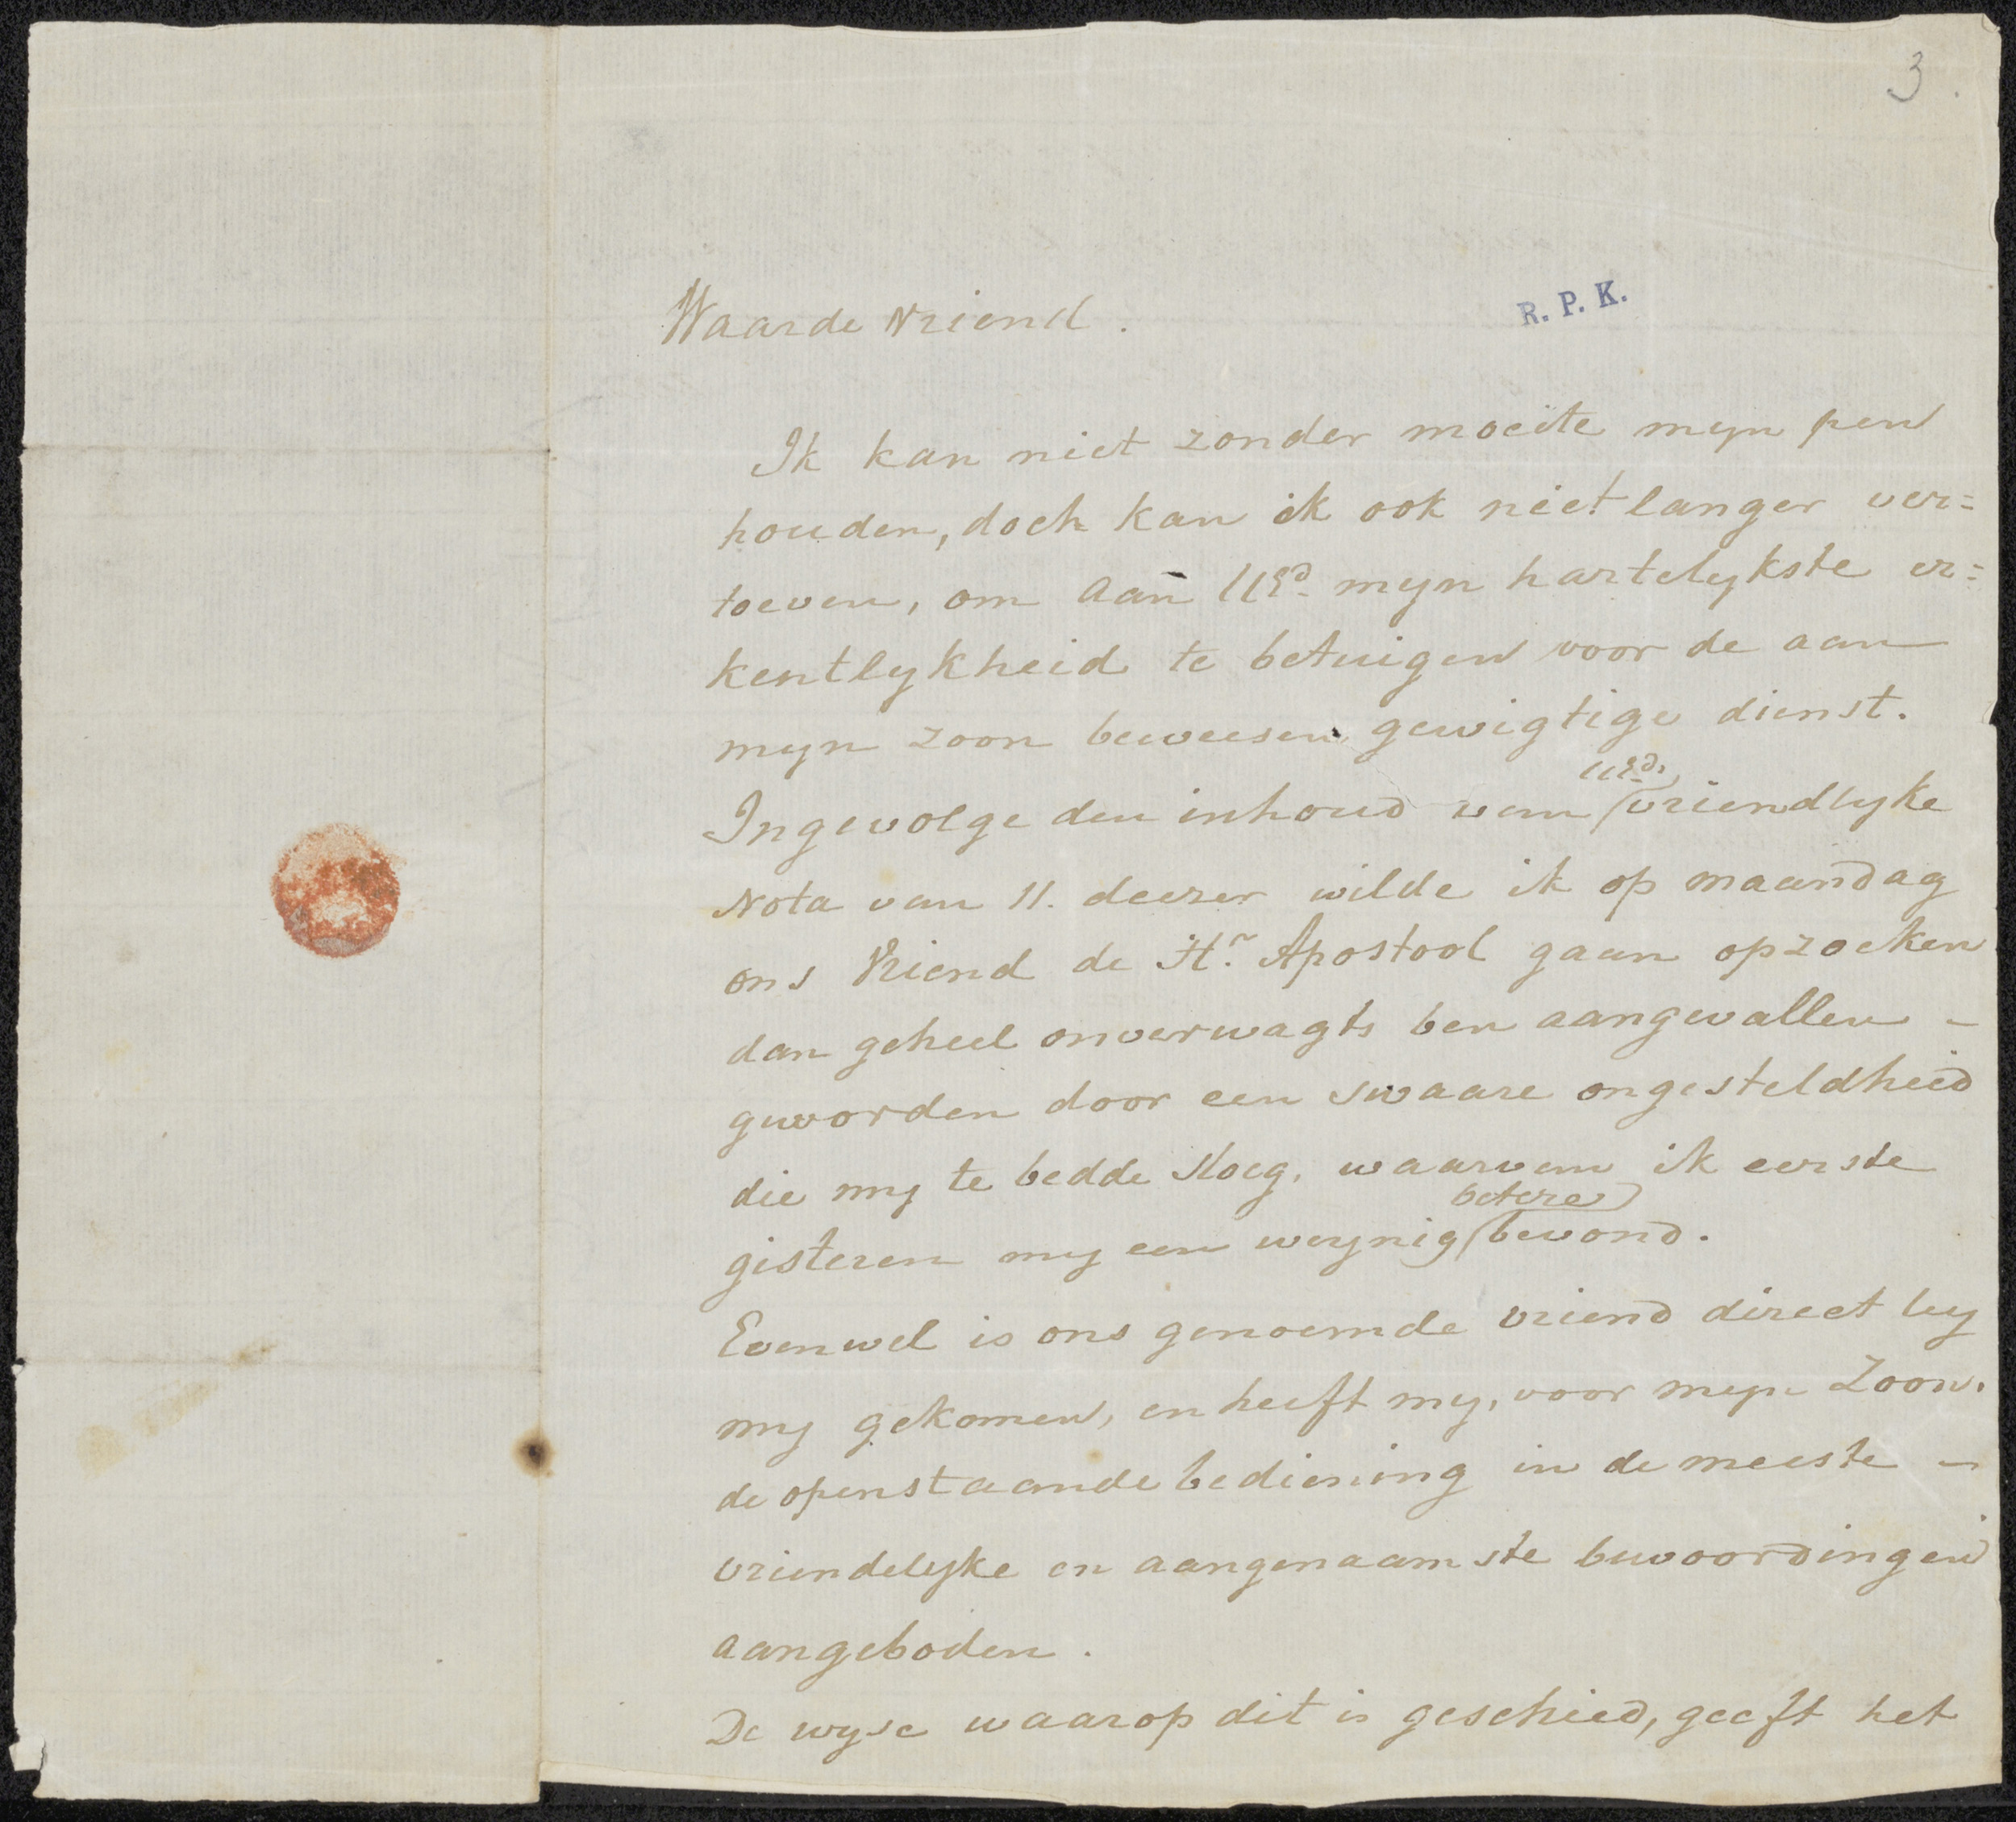 3.
Waarde Vriend.
R. P. K.
Ik kan niet zonder moeite myn pen
houden, doch kan ik ook niet langer ver=
toeven, om aan UEd. myn hartelykste er=
kentlykheid te betuigen voor de aan
myn zoon beweesen gewigtige dienst.
UEds.
Ingevolge den inhoud van vriendlyke
Nota van 11. deezer wilde ik op maandag
ons Vriend de Hr. Apostool gaan opzoeken
dan geheel onverwagts ben aangevallen -
geworden door een swaare ongesteldheid
die my te bedde sloeg, waarvan ik eerste
betere
gisteren my een weynig bevond.
Evenwel is ons genoemde vriend direct by
my gekomen, en heeft my, voor myn Zoon,
de openstaande bediening in de meeste -
vriendelyke en aangenaamste bewoordingen
aangeboden.
De wyse waarop dit is geschied, geeft het